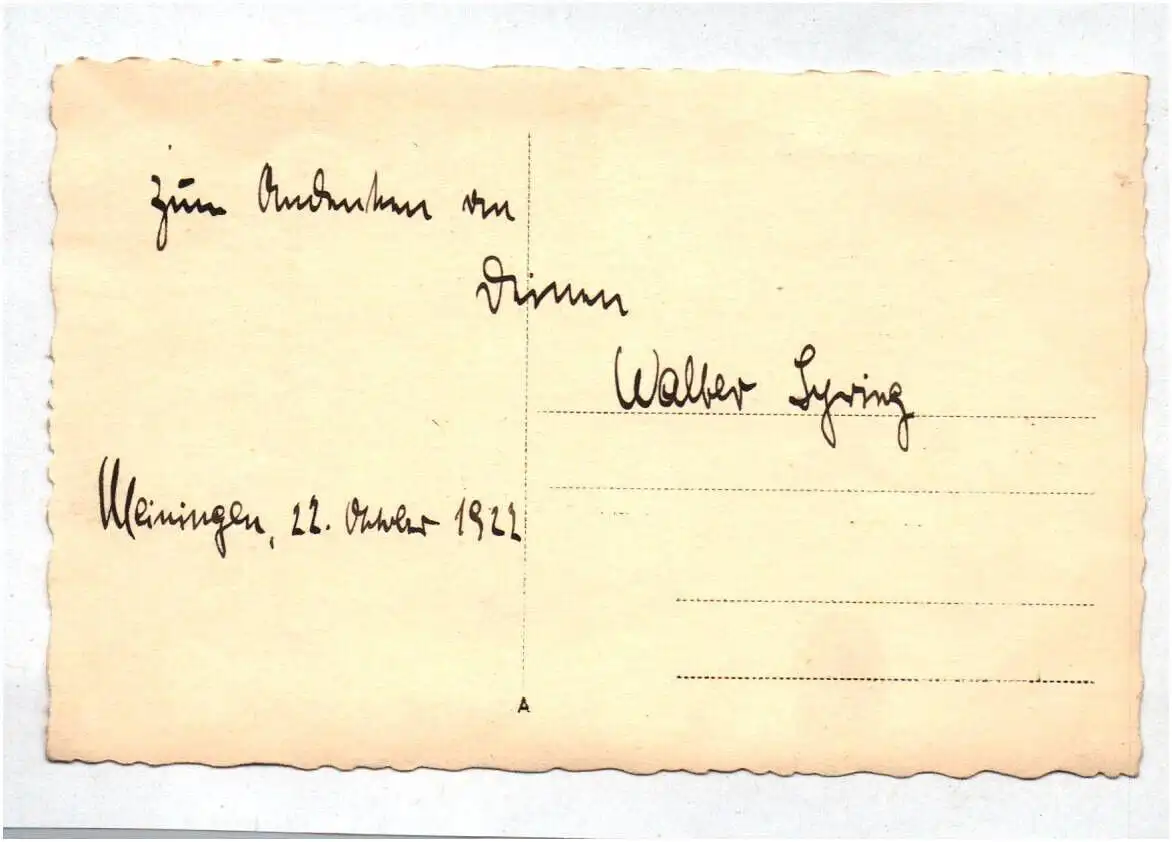 Zum Andenken an
Deinen
Walter
Meiningen, 22. Oktober 1922
A